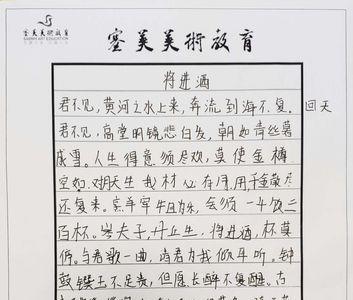 塞美美術教育
SAIMEI ART EDUCATION
塞美美術教育
将进酒
君不见,黄河之水上来,奔流到海不复.回天
君不见,高堂明镜悲白发,朝如青丝暮
成雪.人生得意须尽欢,莫使金樽
空对月.天生我材必有用,千金散尽
还复来.烹羊宰牛且为乐,会须一饮三
百杯.岑夫子,丹丘生,将进酒,杯莫
停.与君歌一曲,请君为我倾耳听.钟
鼓馔玉不足贵,但愿长醉不复醒.古